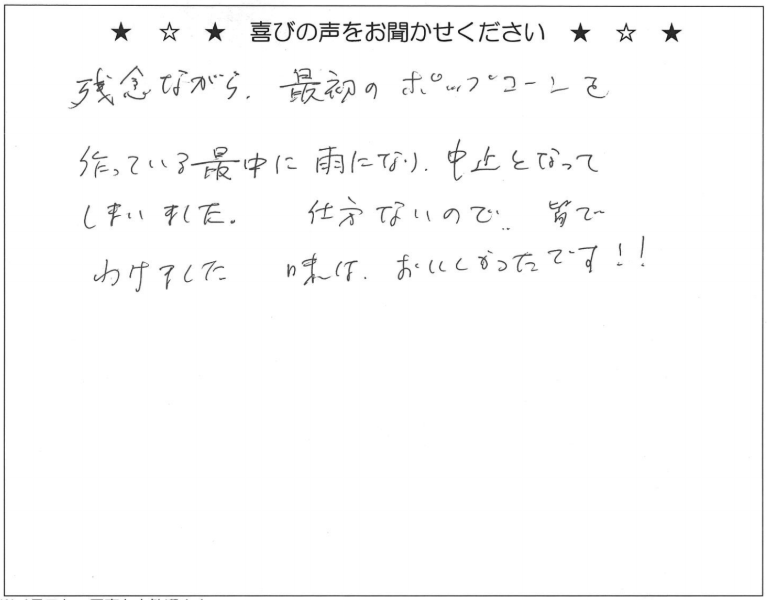 ★ ☆ ★ 喜びの声をお聞かせください ★ ☆ ★
残念ながら、最初のポップコーンを
作っている最中に雨になり、中止となって
しまいました。 仕方ないので、皆で
わけました 味は、おいしかったです!!